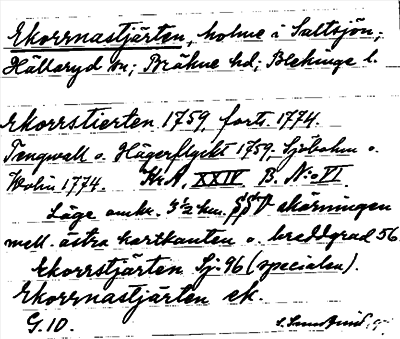 Ekorrnastjärten, holme i Saltsjön;
Hällaryd sn; Bräkne hd; Blekinge l.
Ekorrstierten 1759, forts. 1774.
Tengwall o. Hägerflycht 1759, Sjöbohm o.
Wolin 1774. Kr.A. XXIV. B. N:o VI.
Läge omkr. 3½ km. SSV skärningen
mell. östra kartkanten o. breddgrad 56.
Ekorrstjärten Sj. 96 (specialen).
Ekorrnastjärten ek.
G. 10.